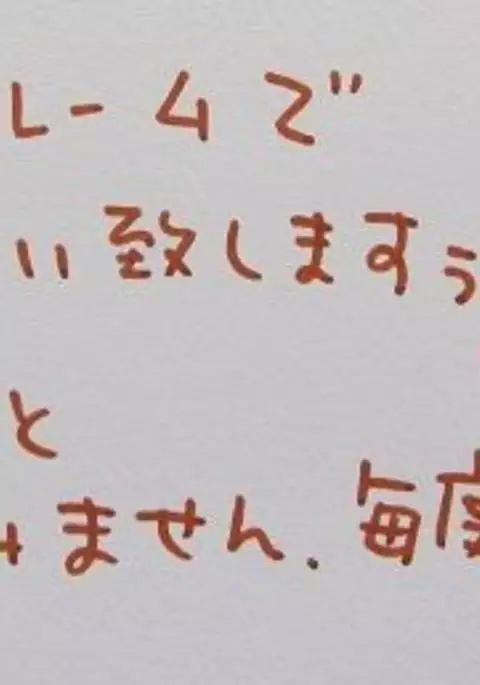 レームで
い致しますぅ
と
みません.毎度